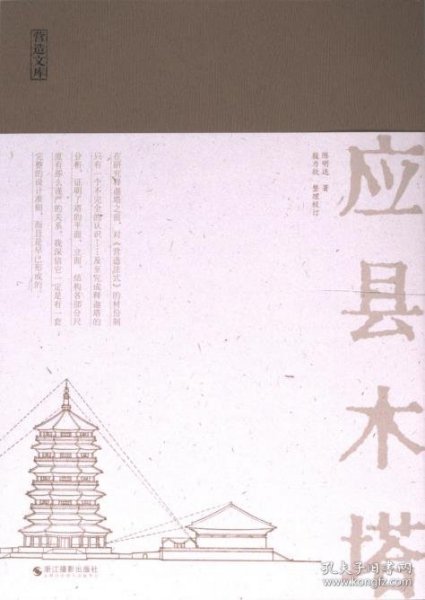 营造文库
应县木塔
陈明达 著
殷力欣 整理校订
在研究释迦塔之前,对《营造法式》的材份制
只有一个不完全的认识……及至完成释迦塔的
分析,证明了塔的平面、立面、结构各部分尺
度有那么严密的关系,我深信它一定是有一套
完整的设计准则,而且是早已形成的。
浙江摄影出版社
孔夫子旧书网
www.kongfz.com